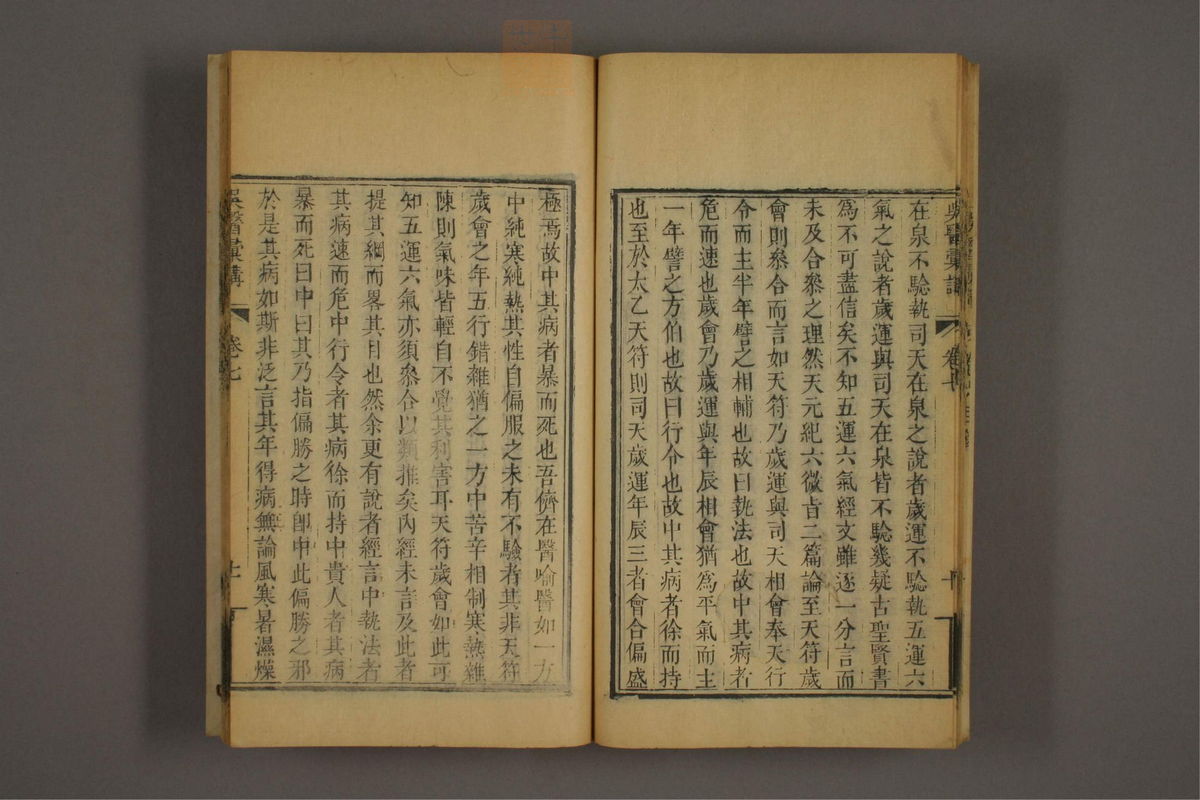 吳醫彙講
卷七
在泉不驗執司天在泉之說者歲運不驗執五運六
氣之說者歲運與司天在泉皆不驗幾疑古聖賢書
爲不可盡信矣不知五運六氣經文雖逐一分言而
未及合叅之理然天元紀六微旨二篇論至天符歲
會則叅合而言如天符乃歲運與司天相會奉天行
令而主半年譬之相輔也故曰執法也故中其病者
危而速也歲會乃歲運與年辰相會猶爲平氣而主
一年譬之方伯也故曰行令也故中其病者徐而持
也至於太乙天符則司天歲運年辰三者會合偏盛
極焉故中其病者暴而死也吾儕在醫喻醫如一方
中純寒純熱其性自偏服之未有不驗者其非天符
歲會之年五行錯雜猶之一方中苦辛相制寒熱雜
陳則氣味皆輕自不覺其利害耳天符歲會如此可
知五運六氣亦須叅合以類推矣內經未言及此者
提其綱而畧其目也然余更有說者經言中執法者
其病速而危中行令者其病徐而持中貴人者其病
暴而死曰中曰其乃指偏勝之時卽中此偏勝之邪
於是其病如斯非泛言其年得病無論風寒暑濕燥
吳醫彙講
卷七